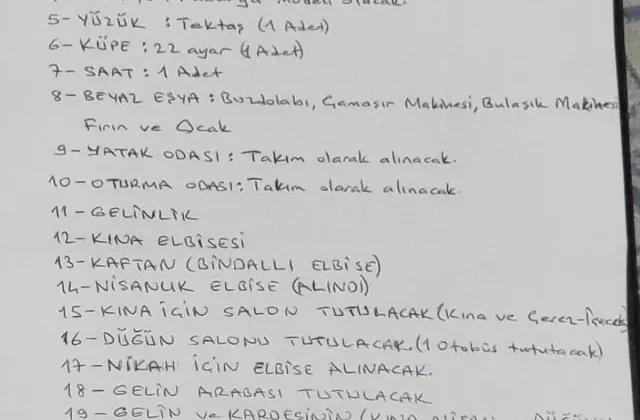 modeli olacak.
5- YÜZÜK : Tektaş (1 Adet)
6- KÜPE : 22 ayar (1 Adet)
7- SAAT : 1 Adet
8- BEYAZ EŞYA : Buzdolabı, Çamaşır Makinesi, Bulaşık Makinesi
Fırın ve Ocak
9- YATAK ODASI : Takım olarak alınacak.
10- OTURMA ODASI : Takım olarak alınacak.
11- GELİNLİK
12- KINA ELBİSESİ
13- KAFTAN (BİNDALLI ELBİSE)
14- NİŞANLIK ELBİSE (ALINDI)
15- KINA İÇİN SALON TUTULACAK (Kına ve Çerez-İçecek)
16- DÜĞÜN SALONU TUTULACAK. (1 Otobüs tutulacak)
17- NİKAH İÇİN ELBİSE ALINACAK.
18- GELİN ARABASI TUTULACAK
19- GELİN ve KARDEŞİNİN (KINA